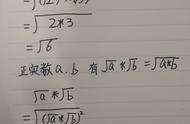 =√2*3
=√6
正实数a.b 有√a*√b=√a*b
√a*√b
=√(√a*√b)²